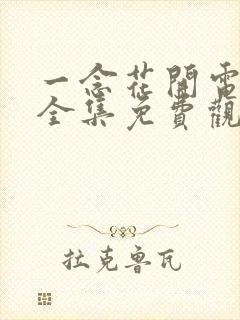 一念花開電
全集免費觀
拉克魯瓦